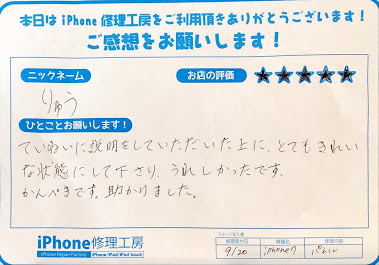 本日は iPhone 修理工房をご利用頂きありがとうございます!
ご感想をお願いします!
ニックネーム
お店の評価
りゅう
ひとことお願いします!
ていねいに説明をしていただいた上に、とてもきれい
な状態にして下さり、うれしかったです。
かんぺきです。助かりました。
iPhone修理工房
iPhone Repair Factory
iPhone/iPad/iPod touch
スタッフ記入欄
修理受付日
機種名
修理内容
9/20
iphone7
パネル